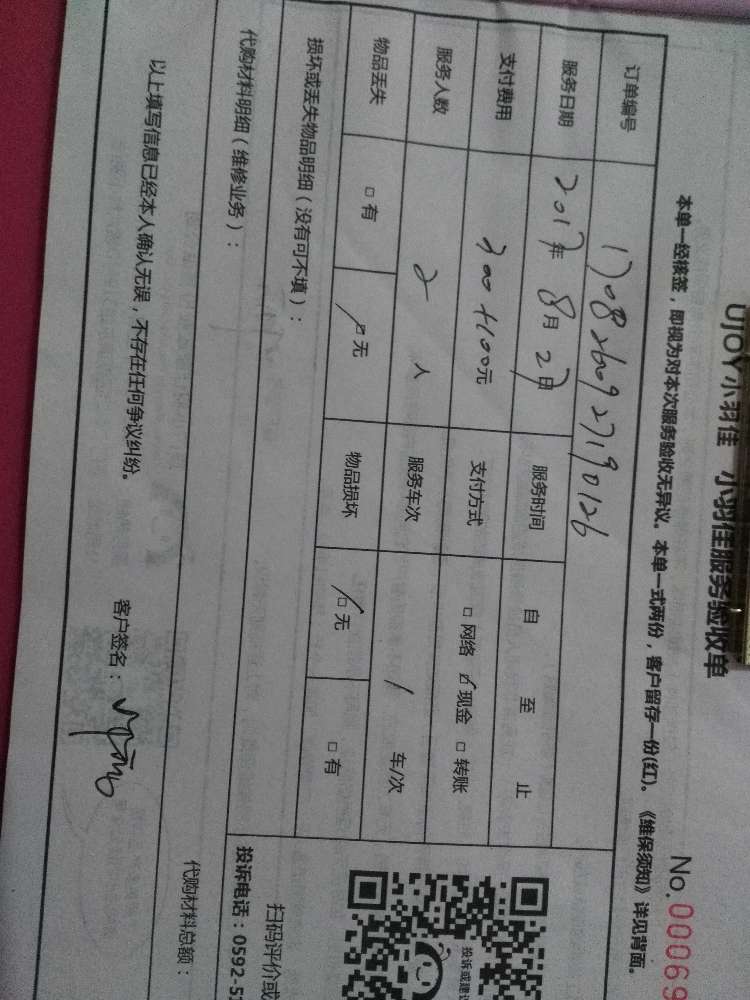 UJOY小羽佳 小羽佳服务验收单
No.00069
本单一经核签，即视为对本次服务验收无异议。本单一式两份，客户留存一份(红)。《维保须知》详见背面。
订单编号 1708260927190126
服务日期 2017年 8月 27日 服务时间 自 至 止
支付费用 300+100元 支付方式 □ 网络 ☑ 现金 □ 转账
服务人数 2 人 服务车次 1 车/次
物品丢失 □ 有 ☑ 无 物品损坏 ☑ 无 □ 有
损坏或丢失物品明细（没有可不填）：
投诉或建议
扫码评价或
投诉电话：0592-5
代购材料明细（维修业务）：
代购材料总额：
以上填写信息已经本人确认无误，不存在任何争议纠纷。 客户签名：